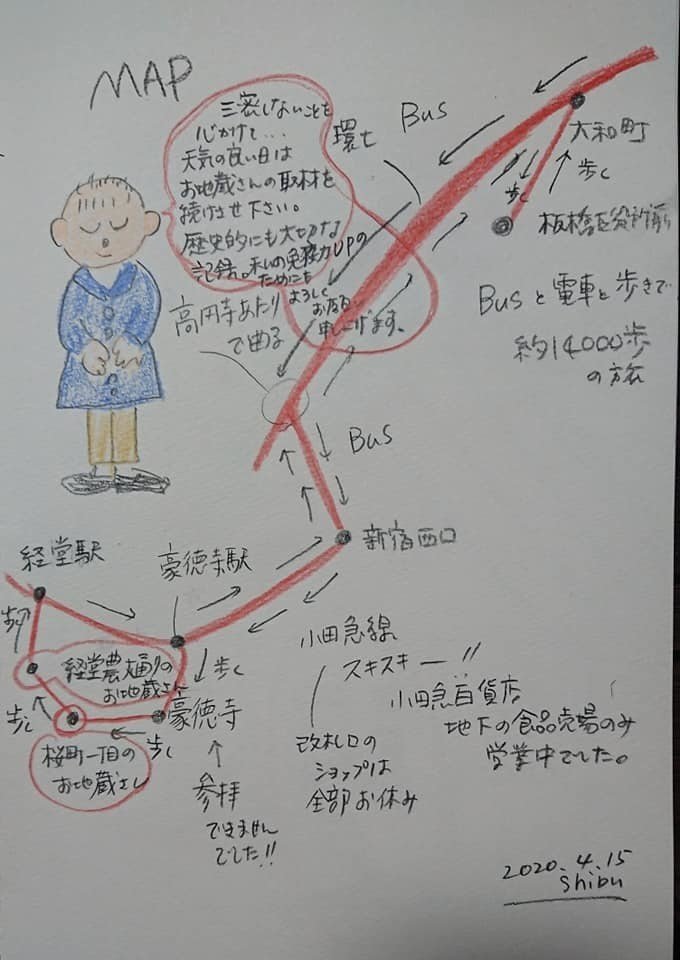 MAP
三密しないことを
心がけて...
天気の良い日は
お地蔵さんの取材を
続けさせ下さい。
歴史的にも大切な
記録。私の免疫力UPの
ためにも
よろしく
お願い
申し上げます。
環七
Bus
大和町
歩く
歩く
板橋区役所前
Busと電車と歩きで
約14000歩
の旅
高円寺あたり
で曲る
Bus
新宿西口
経堂駅
豪徳寺駅
歩く
経堂農大通りの
お地蔵さん
歩く
歩く
豪徳寺
歩く
桜町一丁目の
お地蔵さん
参拝
できません
でした!!
小田急線
スキスキー!!
改札口の
ショップは
全部お休み
小田急百貨店
地下の食品売場のみ
営業中でした。
2020.4.15
shibu